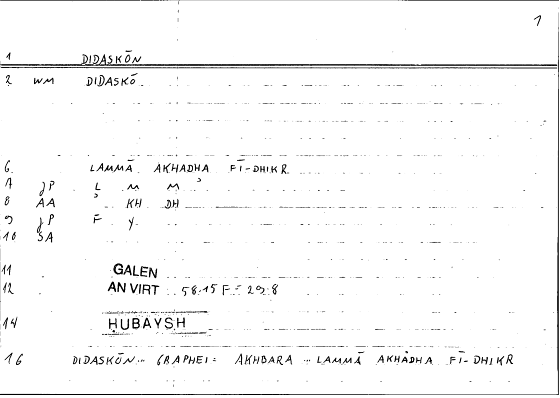 1
1 DIDASKŌN
2 WM DIDASKŌ
6. LAMMĀ AKHADHA FĪ-DHIKR
7 JP L M M
8 AA ʾ KH DH
9 JP F Y
10 SA
11 GALEN
12 AN VIRT 58.15 F = 29.8
14 ḤUBAYSH
16 DIDASKŌN... GRAPHEI: AKHBARA ... LAMMĀ AKHADHA FĪ-DHIKR